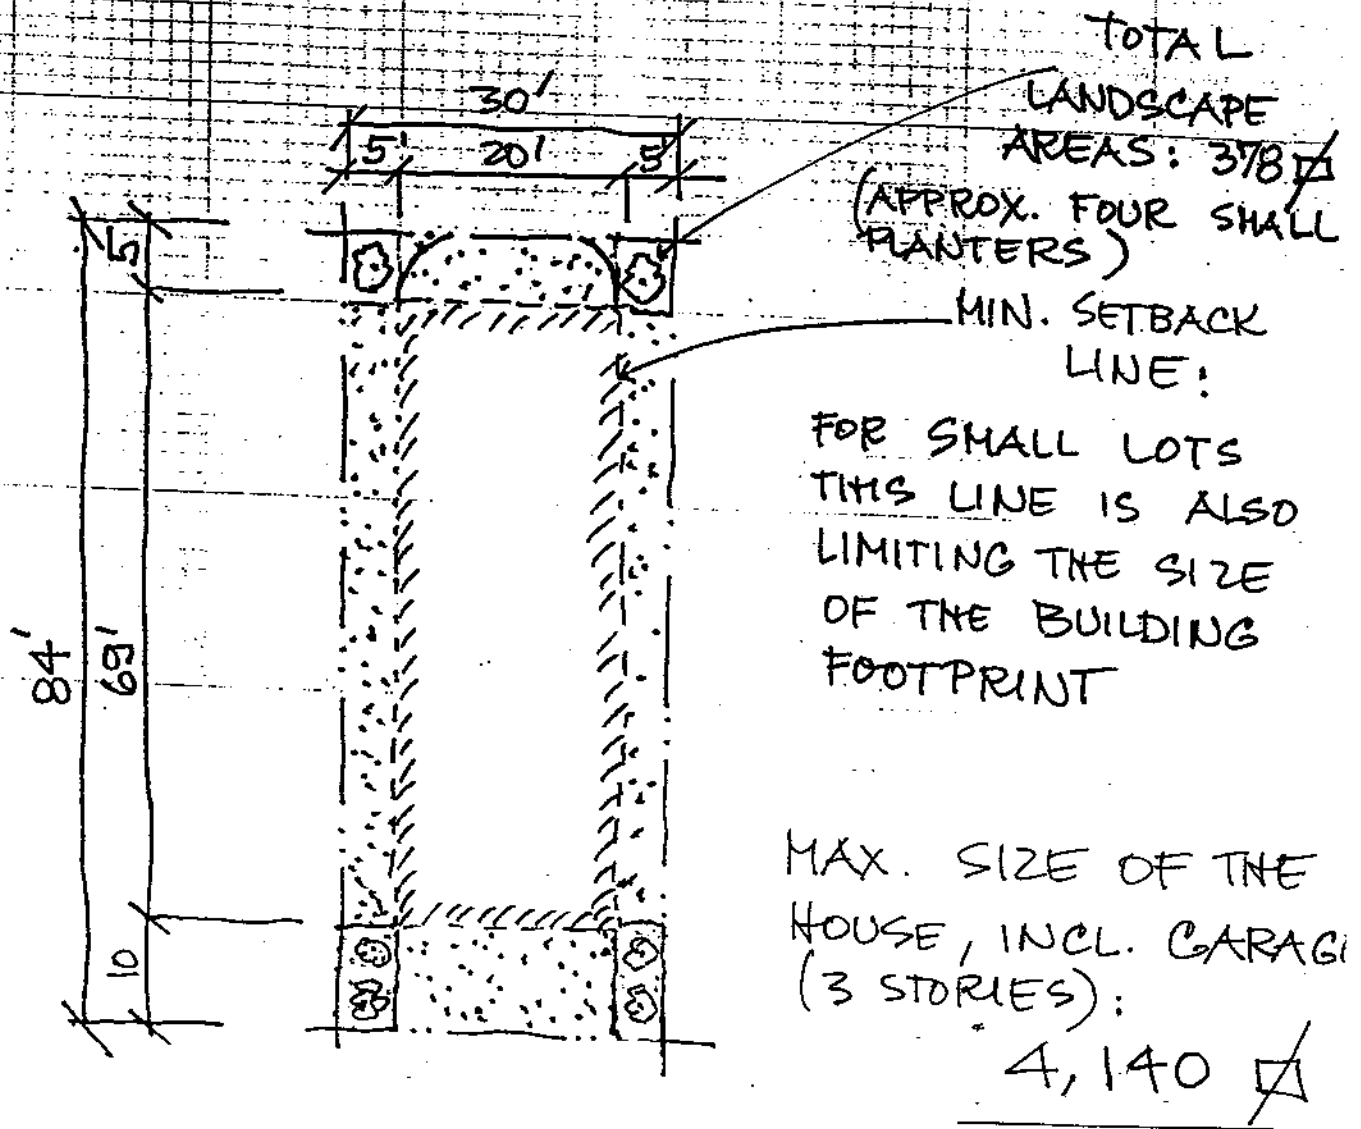 30'
5' 20' 5'
5
84' 69'
10
TOTAL
LANDSCAPE
AREAS: 378
(APPROX. FOUR SMALL
PLANTERS)
MIN. SETBACK
LINE:
FOR SMALL LOTS
THIS LINE IS ALSO
LIMITING THE SIZE
OF THE BUILDING
FOOTPRINT
MAX. SIZE OF THE
HOUSE, INCL. GARAG
(3 STORIES):
4,140